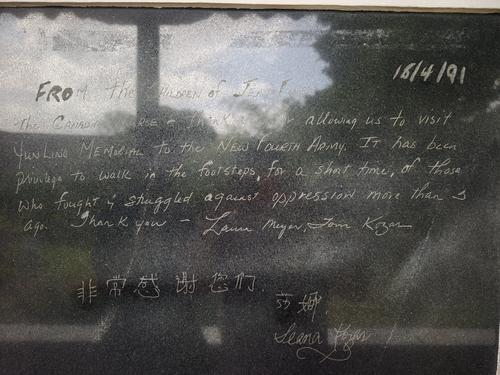 16/4/91
FROM the Children of Jean
The Canadian Nurse - Thank for allowing us to visit
YunLing Memorial to the New Fourth Army. It has been
privilege to walk in the footsteps, for a short time, of those
who fought & struggled against oppression more than 5
ago. Thank you - Laura Meyer, Tom Kozar
非常感谢您们
莎娜
Leana Kozar